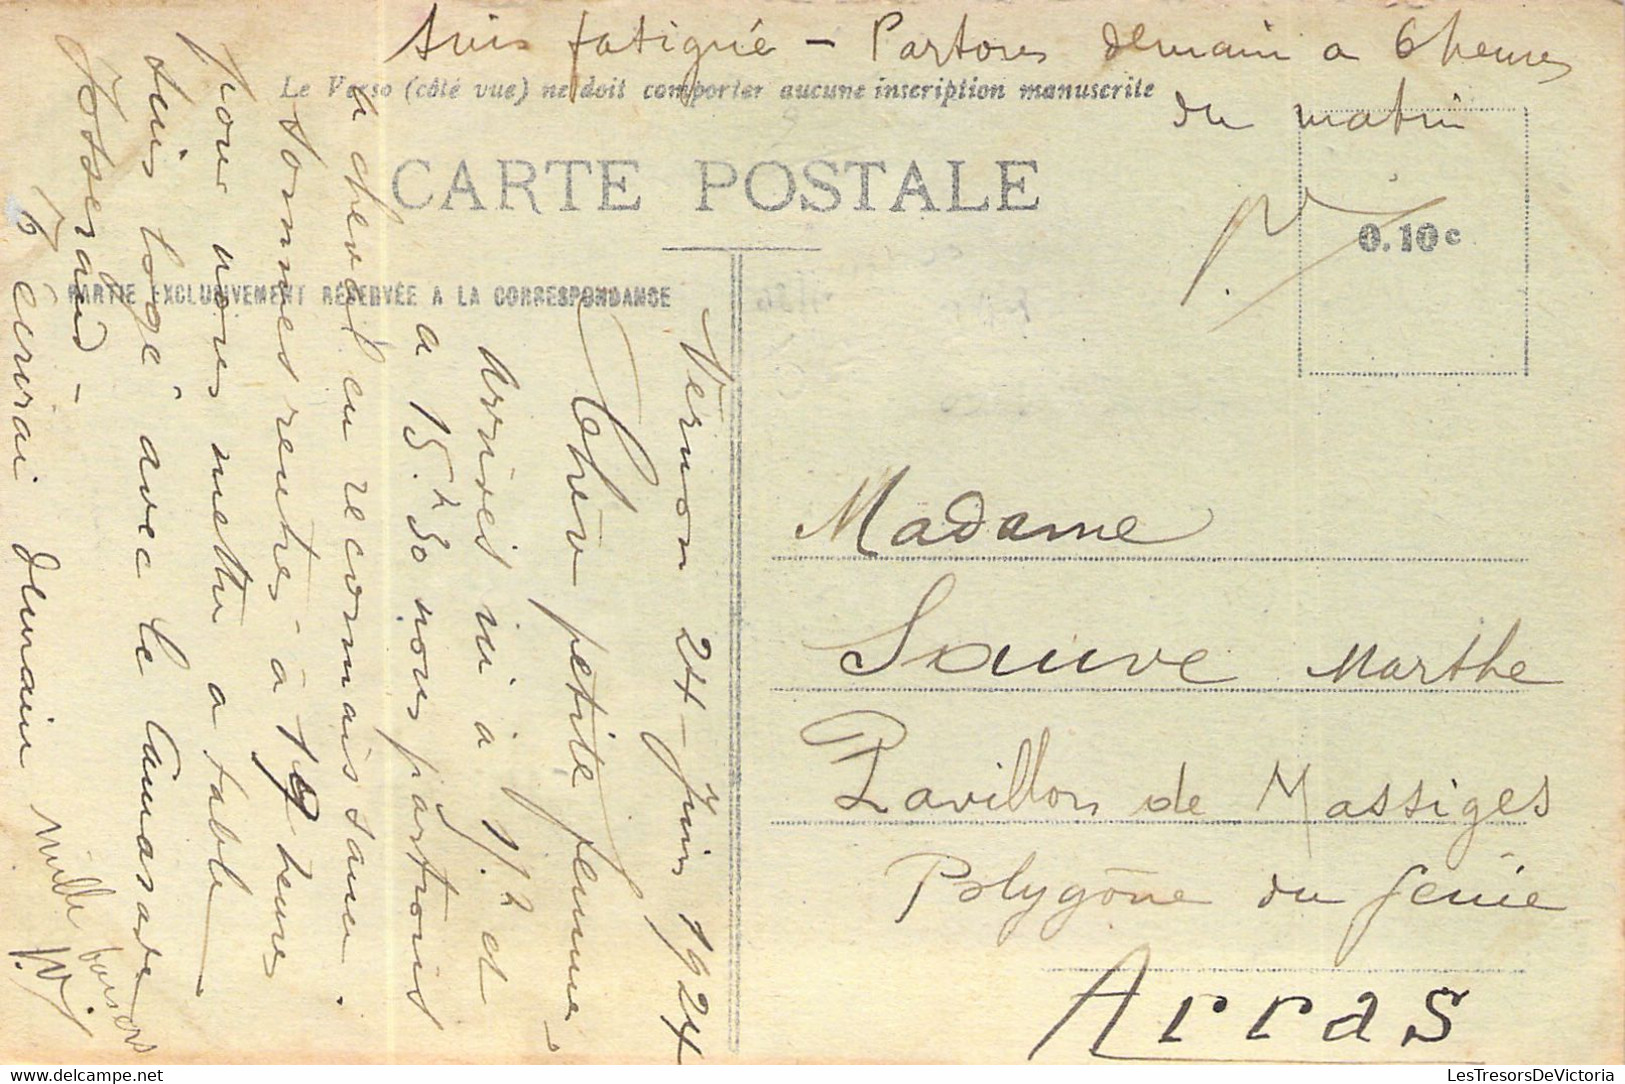 Suis fatigué – Partons demain a 6 heures
du matin
Le Verso (côté vue) ne doit comporter aucune inscription manuscrite
CARTE POSTALE
0.10c
PARTIE EXCLUSIVEMENT RÉSERVÉE A LA CORRESPONDANCE
Vernon 24 – Juin 1924
Chère petite femme –
Arrivés ici à 11.h et
a 15.h30 nous partons
a cheval en reconnaissance.
Sommes rentrés à 19 heures
pour nous mettre a table
Suis logé avec le Camarade
Josserand –
T'écrirai demain
mille baisers
Madame
Sauve Marthe
Pavillon de Massiges
Polygone du Génie
Arras
LesTresorsDeVictoria
delcampe.net